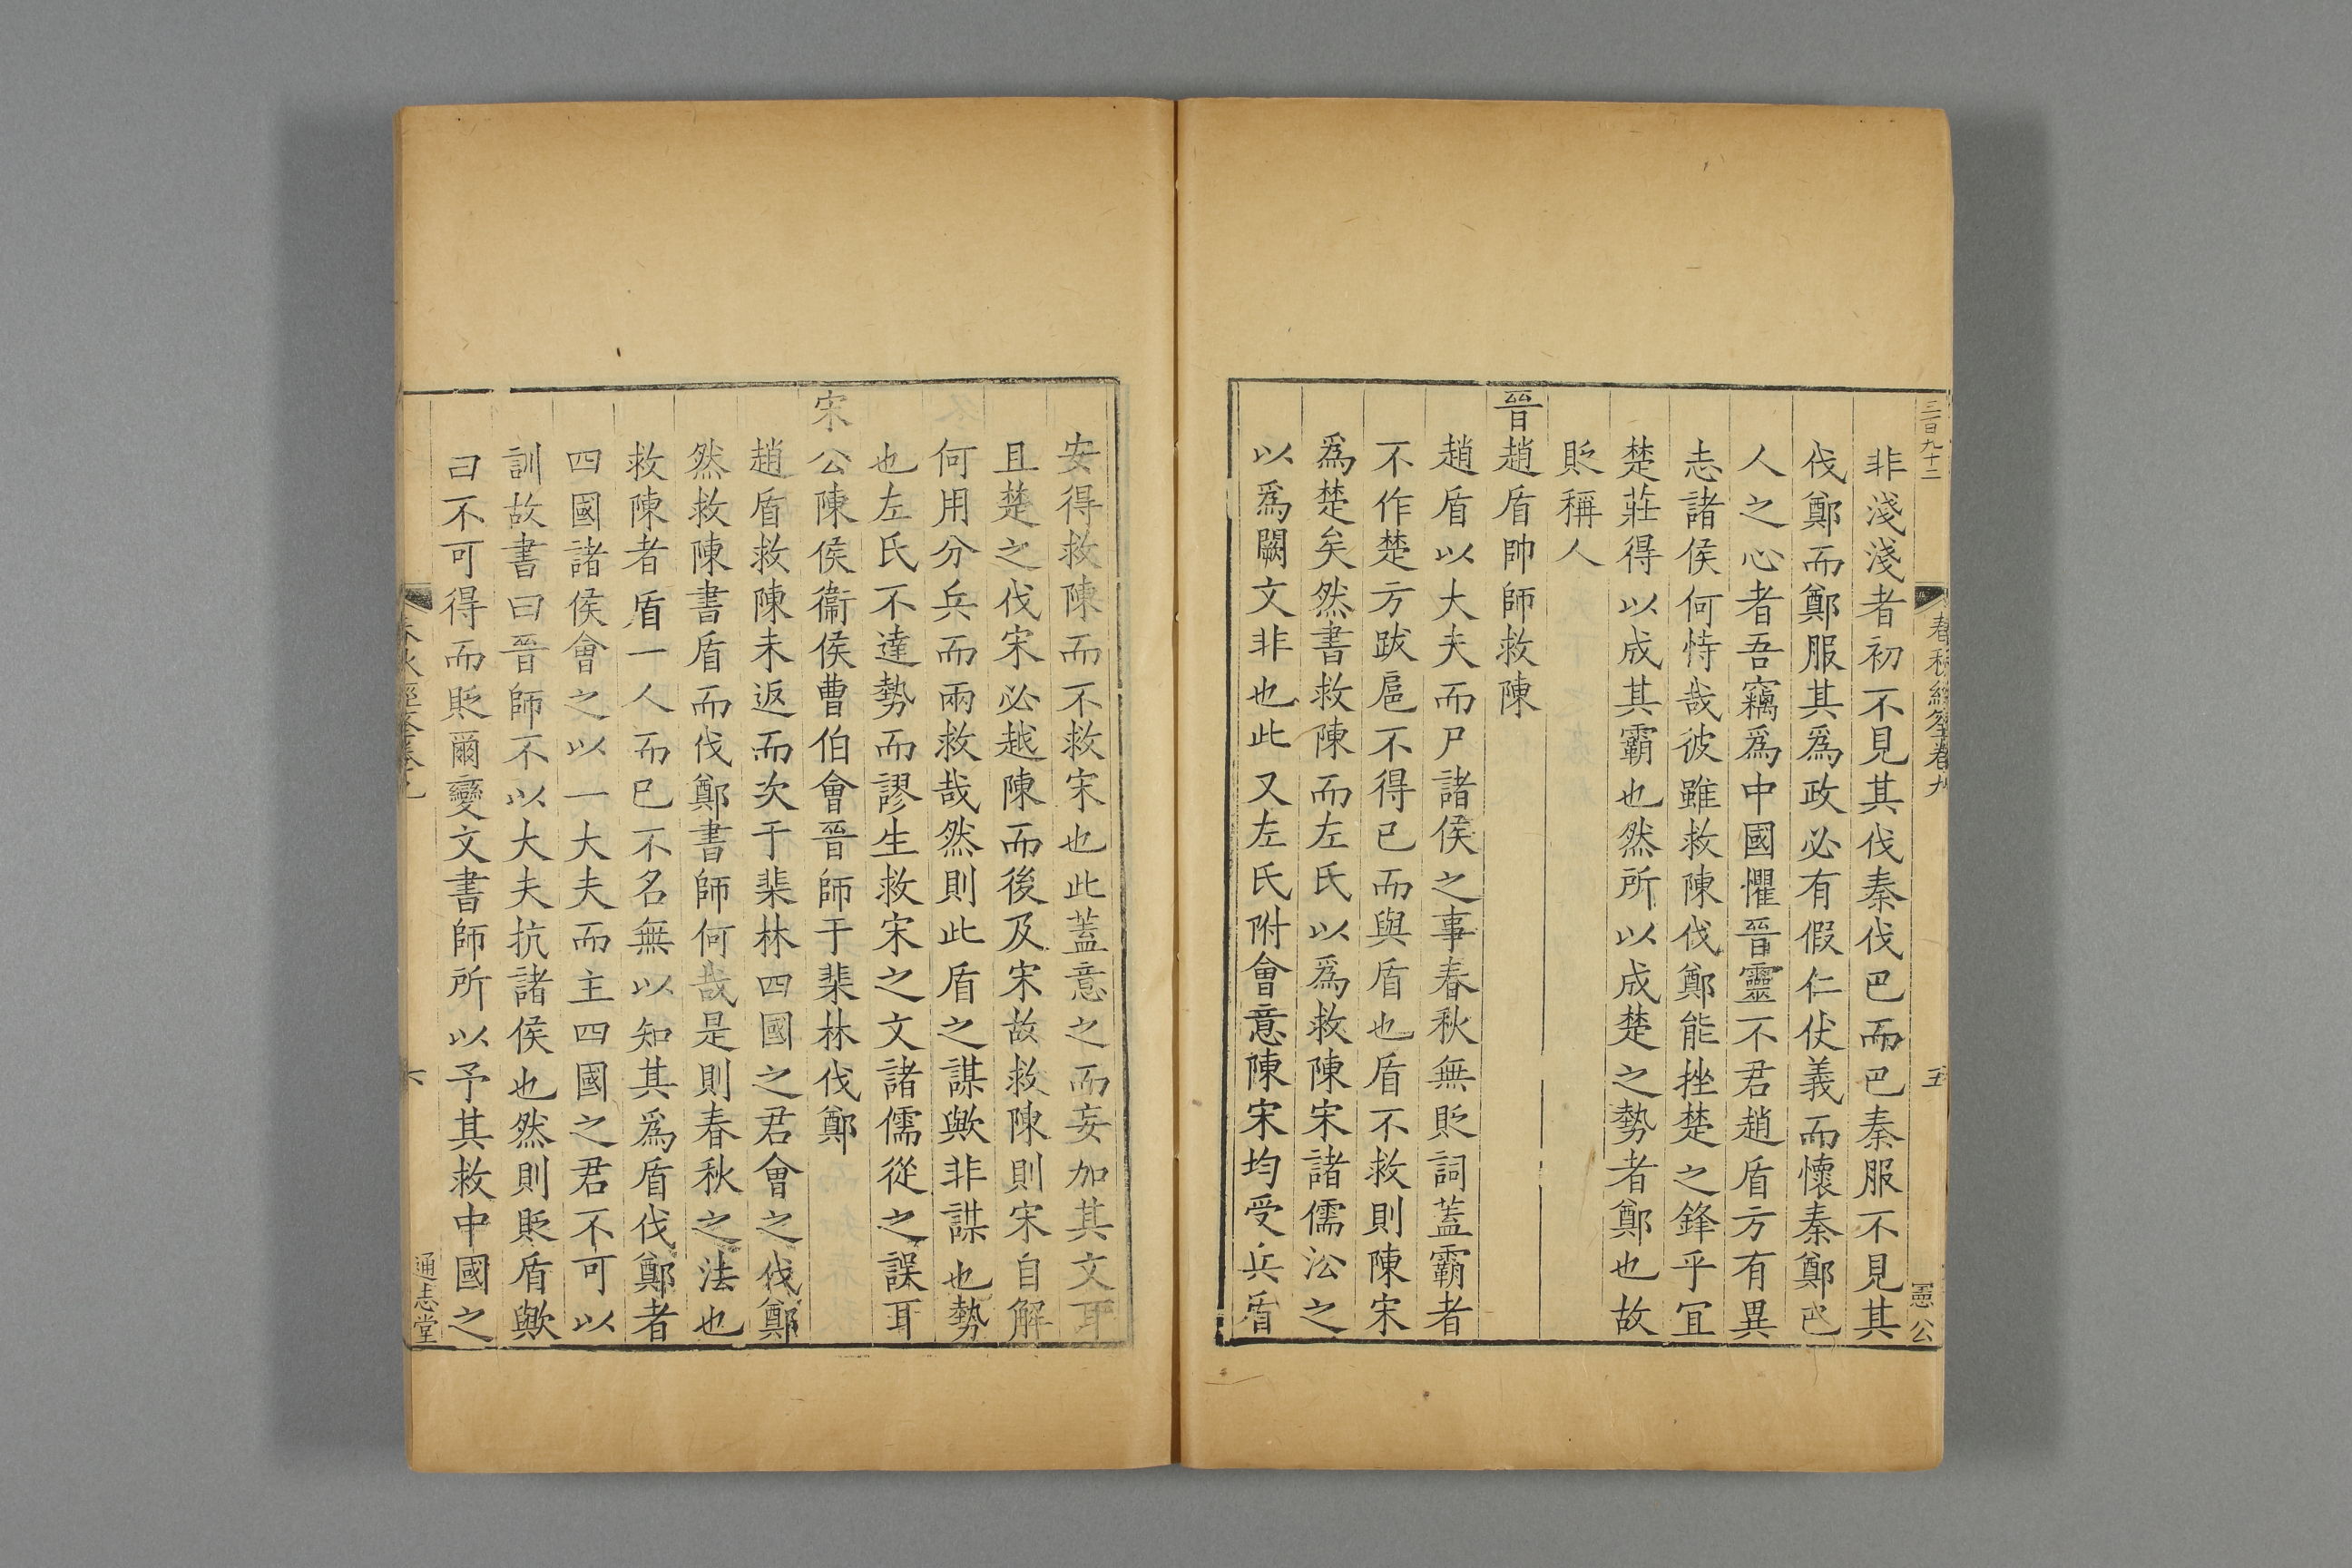 三百九十二
春秋經筌卷九
五
憲公
非淺淺者初不見其伐秦伐巴而巴秦服不見其
伐鄭而鄭服其為政必有假仁伏義而懷秦鄭巴
人之心者吾竊為中國懼晉靈不君趙盾方有異
志諸侯何恃哉彼雖救陳伐鄭能挫楚之鋒乎宜
楚莊得以成其霸也然所以成楚之勢者鄭也故
貶稱人
晉趙盾帥師救陳
趙盾以大夫而尸諸侯之事春秋無貶詞蓋霸者
不作楚方跋扈不得已而與盾也盾不救則陳宋
為楚矣然書救陳而左氏以為救陳宋諸儒㳂之
以為闕文非也此又左氏附會意陳宋均受兵盾
安得救陳而不救宋也此蓋意之而妄加其文耳
且楚之伐宋必越陳而後及宋故救陳則宋自解
何用分兵而兩救哉然則此盾之謀歟非謀也勢
也左氏不達勢而謬生救宋之文諸儒從之誤耳
宋公陳侯衞侯曹伯會晉師于棐林伐鄭
趙盾救陳未返而次于棐林四國之君會之伐鄭
然救陳書盾而伐鄭書師何哉是則春秋之法也
救陳者盾一人而已不名無以知其為盾伐鄭者
四國諸侯會之以一大夫而主四國之君不可以
訓故書曰晉師不以大夫抗諸侯也然則貶盾歟
曰不可得而貶爾變文書師所以予其救中國之
六
通志堂